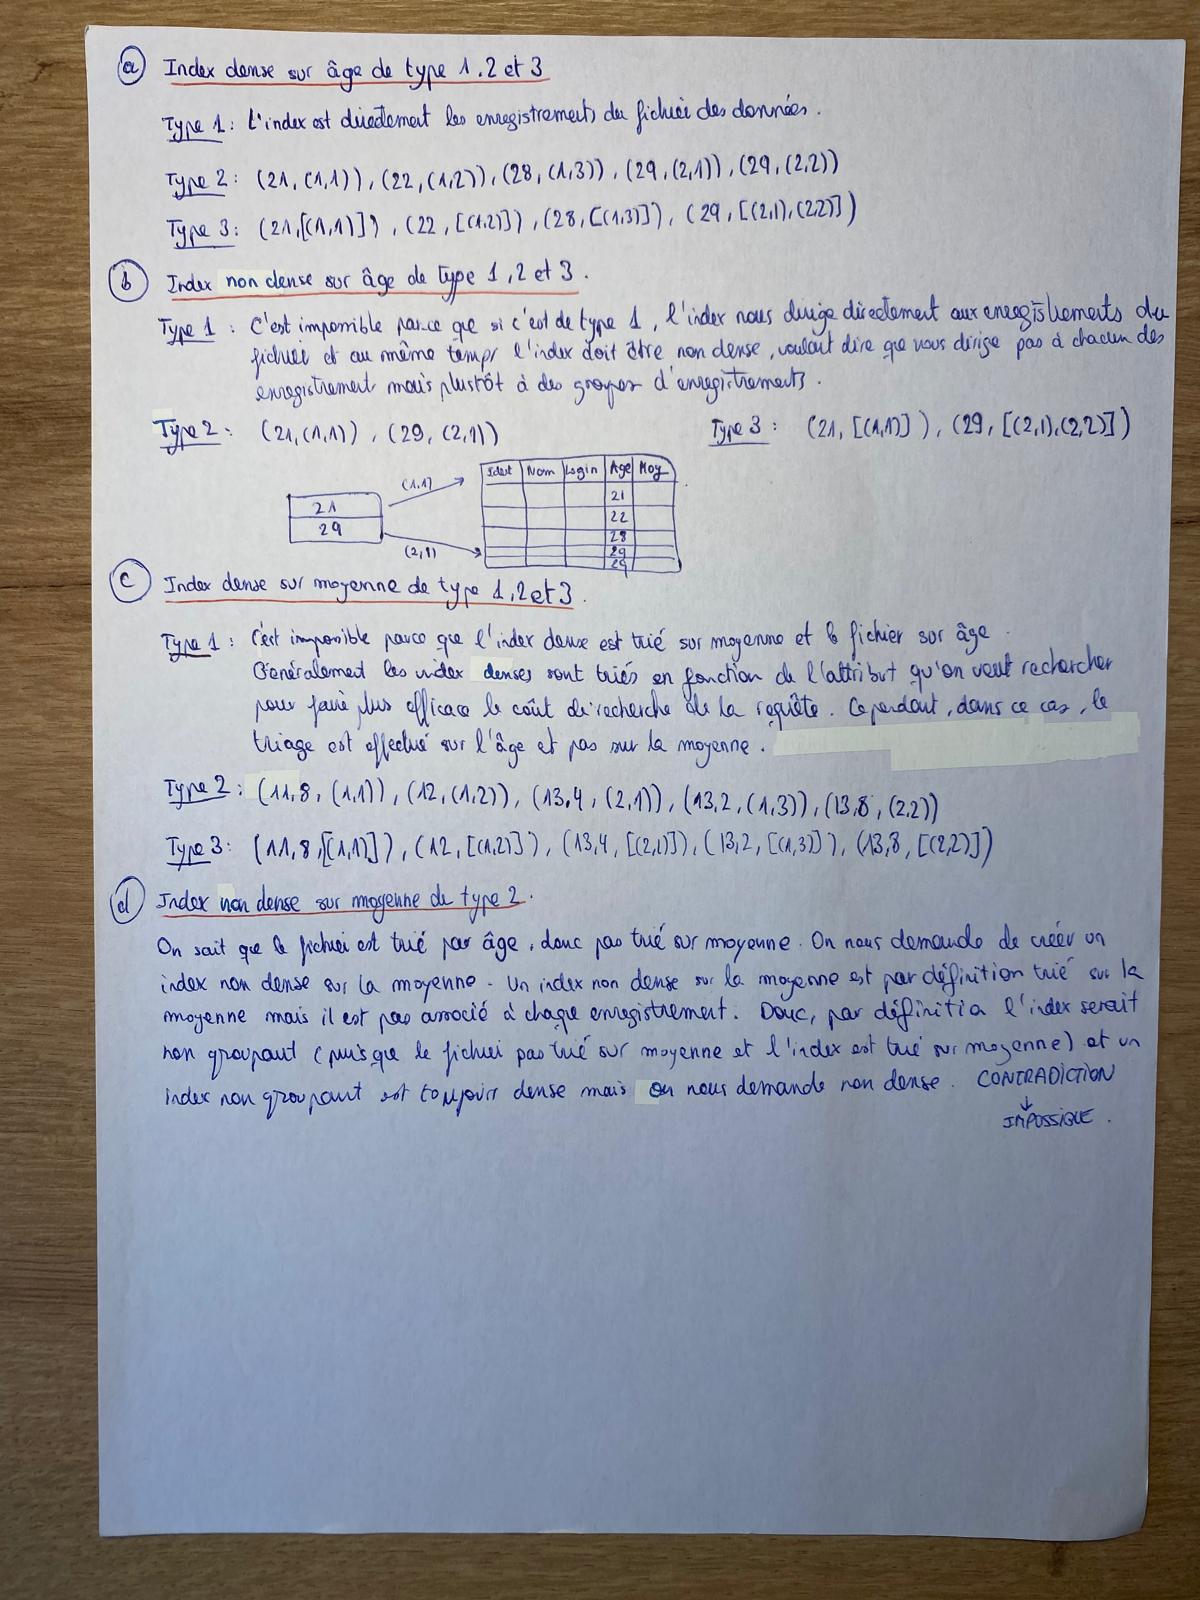 a Index dense sur âge de type 1.2 et 3
Type 1 : L'index est directement les enregistrements du fichier des données.
Type 2 : (21, (1,1)), (22, (1,2)), (28, (1,3)), (29, (2,1)), (29, (2,2))
Type 3 : (21,[(1,1)]), (22, [(1,2)]), (28, [(1,3)]), (29, [(2,1),(2,2)])
b Index non dense sur âge de type 1,2 et 3.
Type 1 : C'est impossible parce que si c'est de type 1, l'index nous dirige directement aux enregistrements du
fichier et au même temps l'index doit être non dense, voulant dire que vous dirige pas à chacun des
enregistrement mais plustôt à des groupes d'enregistrements.
Type 2 : (21,(1,1)), (29, (2,1)) Type 3 : (21, [(1,1)]), (29, [(2,1),(2,2)])
Ident Nom Login Age Moy
(1,1)
21
21
22
29
28
(2,1)
29
29
c Index dense sur moyenne de type 1,2 et 3.
Type 1 : C'est impossible parce que l'index dense est trié sur moyenne et le fichier sur âge.
Généralement les index denses sont triés en fonction de l'attribut qu'on veut rechercher
pour faire plus efficace le coût de recherche de la requête. Cependant, dans ce cas, le
triage est effectué sur l'âge et pas sur la moyenne.
Type 2 : (11,8, (1,1)), (12, (1,2)), (13,4, (2,1)), (13,2, (1,3)), (13,8, (2,2))
Type 3 : (11,8,[(1,1)]), (12, [(1,2)]), (13,4, [(2,1)]), (13,2, [(1,3)]), (13,8, [(2,2)])
d Index non dense sur moyenne de type 2.
On sait que le fichier est trié par âge, donc pas trié sur moyenne. On nous demande de créer un
index non dense sur la moyenne. Un index non dense sur la moyenne est par définition trié sur la
moyenne mais il est pas associé à chaque enregistrement. Donc, par définitia l'index serait
non groupant (puisque le fichier pas trié sur moyenne et l'index est trié sur moyenne) et un
index non groupant est toujours dense mais on nous demande non dense. CONTRADICTION
↓
IMPOSSIBLE.